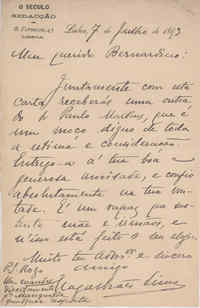 O SECULO
REDACÇÃO
R. FORMOSA, 43
LISBOA
Lxa, 7 de Julho de 1893
Meu querido Bernardino:
Juntamente com esta
carta receberás uma outra
do Paulo Martins, que é
um moço digno de toda
a estima e consideração.
Entrego-o á tua boa e
generosa amizade, e confio
absolutamente na tua von-
tade. É um rapaz que sus-
tenta mãe e irmãos, e
n'isso está feito o seu elogio.
Muito teu adms.or e sincero
amigo
Magalhães Lima
P.S. Rogo